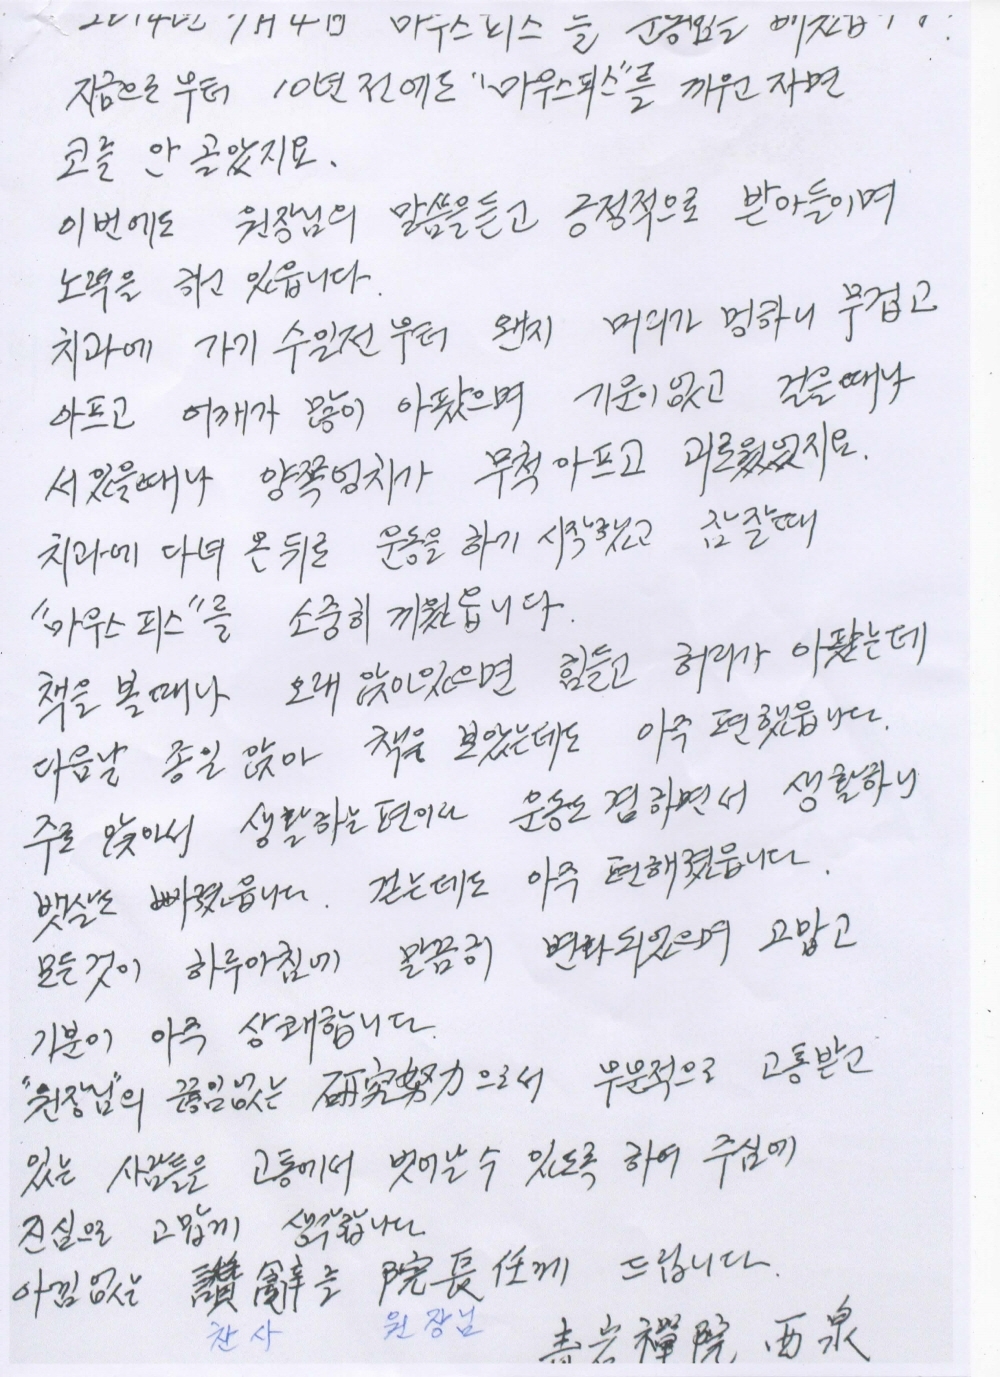 2014년 7月 4日 마우스피스를
지금으로 부터 10년 전에도 "마우스피스"를 끼워 자면
코를 안 골았지요.
이번에도 원장님의 말씀을 듣고 긍정적으로 받아들이며
노력을 하고 있읍니다.
치과에 가기 수일전 부터 왠지 머리가 멍하니 무겁고
아프고 어깨가 많이 아팠으며 기운이 없고 걸을때나
서있을때나 양쪽엉치가 무척 아프고 괴로웠었지요.
치과에 다녀 온 뒤로 운동을 하기 시작했고 잠잘때
"마우스 피스"를 소중히 끼웠읍니다.
책을 볼때나 오래 앉아있으면 힘들고 허리가 아팠는데
다음날 종일 앉아 책을 보았는데도 아주 편했읍니다.
주로 앉아서 생활하는 편이나 운동도 겸하면서 생활하니
뱃살도 빠졌읍니다. 걷는데도 아주 편해졌읍니다.
모든것이 하루아침에 말끔히 변화되었으며 고맙고
기분이 아주 상쾌합니다.
"원장님"의 끊임없는 硏究努力으로서 부분적으로 고통받고
있는 사람들을 고통에서 벗어날 수 있도록 하여 주심에
진심으로 고맙게 생각합니다.
아낌없는 讚辭를 院長任께 드립니다.
찬사 원장님
禪院 西泉